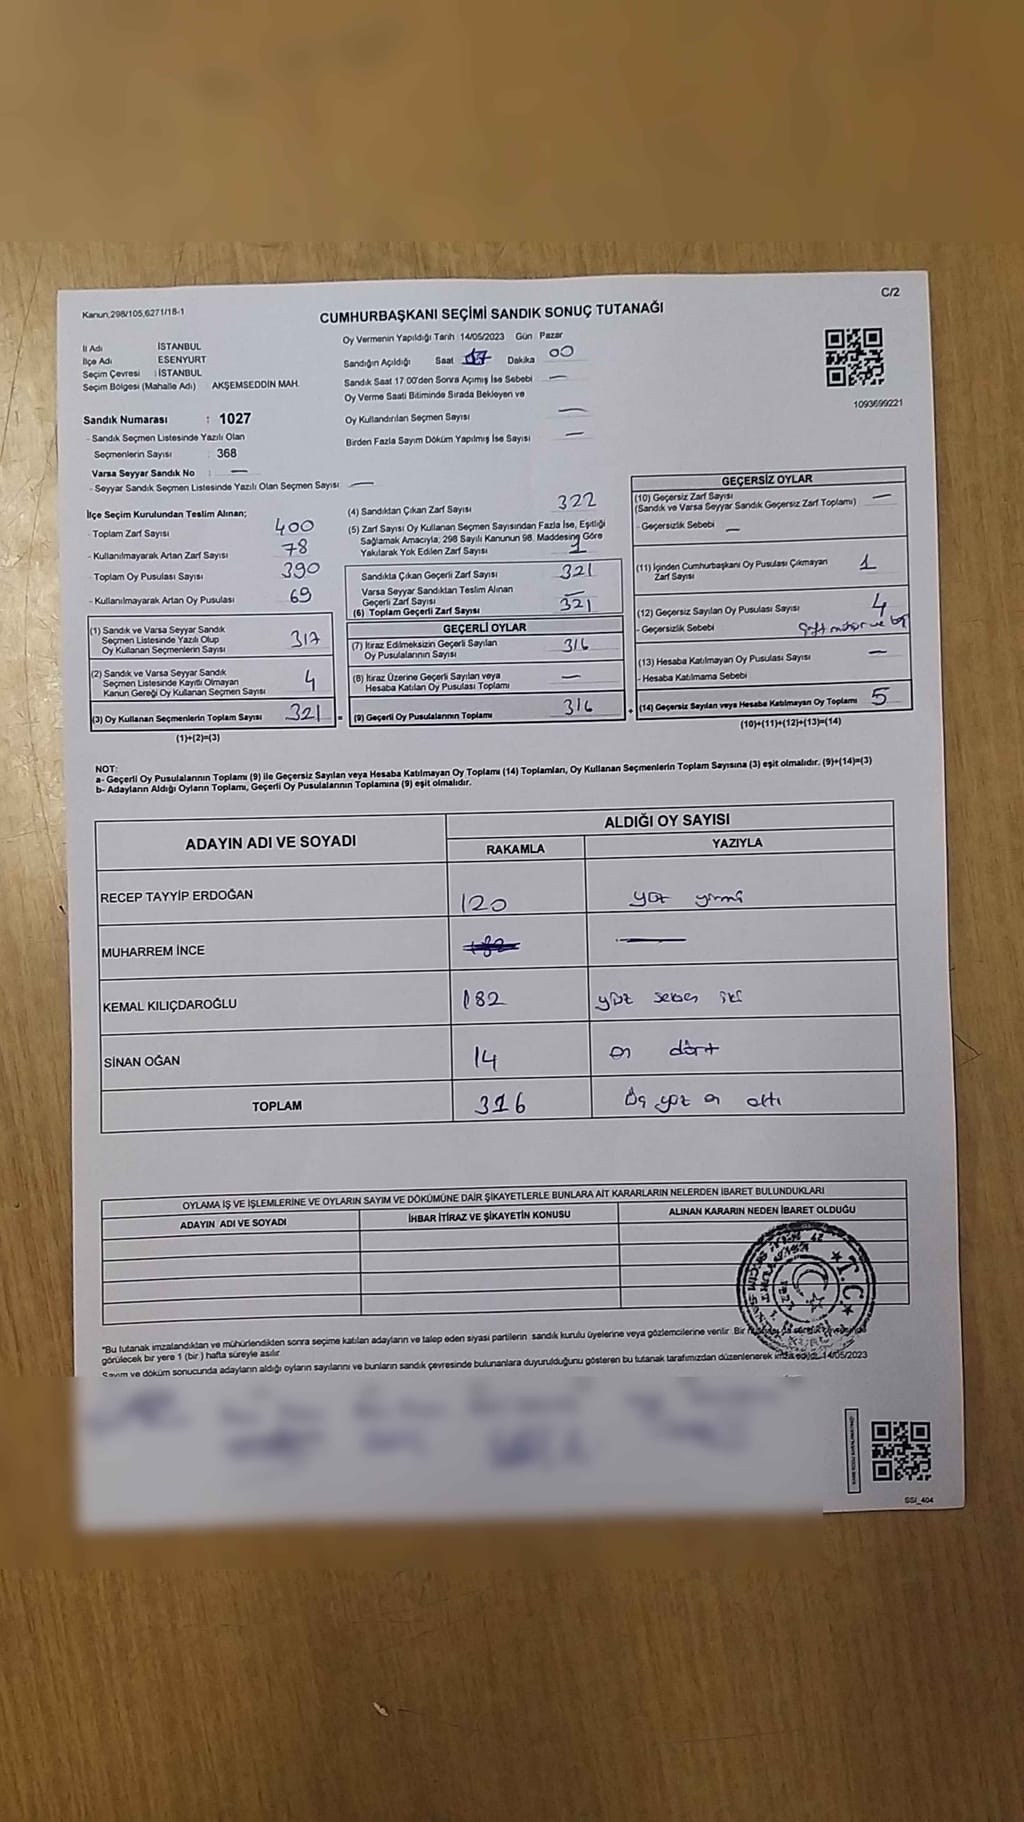 C/2
Kanun,298/105,6271/18-1
CUMHURBAŞKANI SEÇİMİ SANDIK SONUÇ TUTANAĞI
1093699221
İl Adı İSTANBUL
İlçe Adı ESENYURT
Seçim Çevresi : İSTANBUL
Seçim Bölgesi (Mahalle Adı) AKŞEMSEDDİN MAH.
Sandık Numarası : 1027
- Sandık Seçmen Listesinde Yazılı Olan
Seçmenlerin Sayısı : 368
Varsa Seyyar Sandık No : —
- Seyyar Sandık Seçmen Listesinde Yazılı Olan Seçmen Sayısı —
Oy Vermenin Yapıldığı Tarih 14/05/2023 Gün Pazar
Sandığın Açıldığı Saat 17 Dakika 00
Sandık Saat 17.00'den Sonra Açımış İse Sebebi —
Oy Verme Saati Bitiminde Sırada Bekleyen ve
Oy Kullandırılan Seçmen Sayısı —
Birden Fazla Sayım Döküm Yapılmış İse Sayısı —
İlçe Seçim Kurulundan Teslim Alınan;
- Toplam Zarf Sayısı 400
- Kullanılmayarak Artan Zarf Sayısı 78
- Toplam Oy Pusulası Sayısı 390
- Kullanılmayarak Artan Oy Pusulası 69
(1) Sandık ve Varsa Seyyar Sandık
Seçmen Listesinde Yazılı Olup
Oy Kullanan Seçmenlerin Sayısı 317
(2) Sandık ve Varsa Seyyar Sandık
Seçmen Listesinde Kayıtlı Olmayan
Kanun Gereği Oy Kullanan Seçmen Sayısı 4
(3) Oy Kullanan Seçmenlerin Toplam Sayısı 321 =
(1)+(2)=(3)
(4) Sandıktan Çıkan Zarf Sayısı 322
(5) Zarf Sayısı Oy Kullanan Seçmen Sayısından Fazla İse, Eşitliği
Sağlamak Amacıyla, 298 Sayılı Kanunun 98. Maddesing Göre
Yakılarak Yok Edilen Zarf Sayısı 1
Sandıkta Çıkan Geçerli Zarf Sayısı 321
Varsa Seyyar Sandıktan Teslim Alınan
Geçerli Zarf Sayısı —
(6) Toplam Geçerli Zarf Sayısı 321
GEÇERLİ OYLAR
(7) İtiraz Edilmeksizin Geçerli Sayılan
Oy Pusulalarının Sayısı 316
(8) İtiraz Üzerine Geçerli Sayılan veya
Hesaba Katılan Oy Pusulası Toplamı —
(9) Geçerli Oy Pusulalarının Toplamı 316 +
GEÇERSİZ OYLAR
(10) Geçersiz Zarf Sayısı —
(Sandık ve Varsa Seyyar Sandık Geçersiz Zarf Toplamı)
- Geçersizlik Sebebi —
(11) İçinden Cumhurbaşkanı Oy Pusulası Çıkmayan
Zarf Sayısı 1
(12) Geçersiz Sayılan Oy Pusulası Sayısı 4
- Geçersizlik Sebebi Çift mühür ve
(13) Hesaba Katılmayan Oy Pusulası Sayısı —
- Hesaba Katılmama Sebebi
(14) Geçersiz Sayılan veya Hesaba Katılmayan Oy Toplamı 5
(10)+(11)+(12)+(13)=(14)
NOT:
a- Geçerli Oy Pusulalarının Toplamı (9) ile Geçersiz Sayılan veya Hesaba Katılmayan Oy Toplamı (14) Toplamları, Oy Kullanan Seçmenlerin Toplam Sayısına (3) eşit olmalıdır. (9)+(14)=(3)
b- Adayların Aldığı Oyların Toplamı, Geçerli Oy Pusulalarının Toplamına (9) eşit olmalıdır.
ADAYIN ADI VE SOYADI ALDIĞI OY SAYISI
RAKAMLA YAZIYLA
RECEP TAYYİP ERDOĞAN 120 yüz yirmi
MUHARREM İNCE —
KEMAL KILIÇDAROĞLU 182 yüz seksen iki
SİNAN OĞAN 14 on dört
TOPLAM 316 Üç yüz on altı
OYLAMA İŞ VE İŞLEMLERİNE VE OYLARIN SAYIM VE DÖKÜMÜNE DAİR ŞİKAYETLERLE BUNLARA AİT KARARLARIN NELERDEN İBARET BULUNDUKLARI
ADAYIN ADI VE SOYADI İHBAR İTİRAZ VE ŞİKAYETİN KONUSU ALINAN KARARIN NEDEN İBARET OLDUĞU
T.C.
"Bu tutanak imzalandıktan ve mühürlendikten sonra seçime katılan adayların ve talep eden siyasi partilerin sandık kurulu üyelerine veya gözlemcilerine verilir. Bir
görülecek bir yere 1 (bir) hafta süreyle asılır.
Sayım ve döküm sonucunda adayların aldığı oyların sayılarını ve bunların sandık çevresinde bulunanlara duyurulduğunu gösteren bu tutanak tarafımızdan düzenlenerek imza edildi. 14/05/2023
SSİ_404